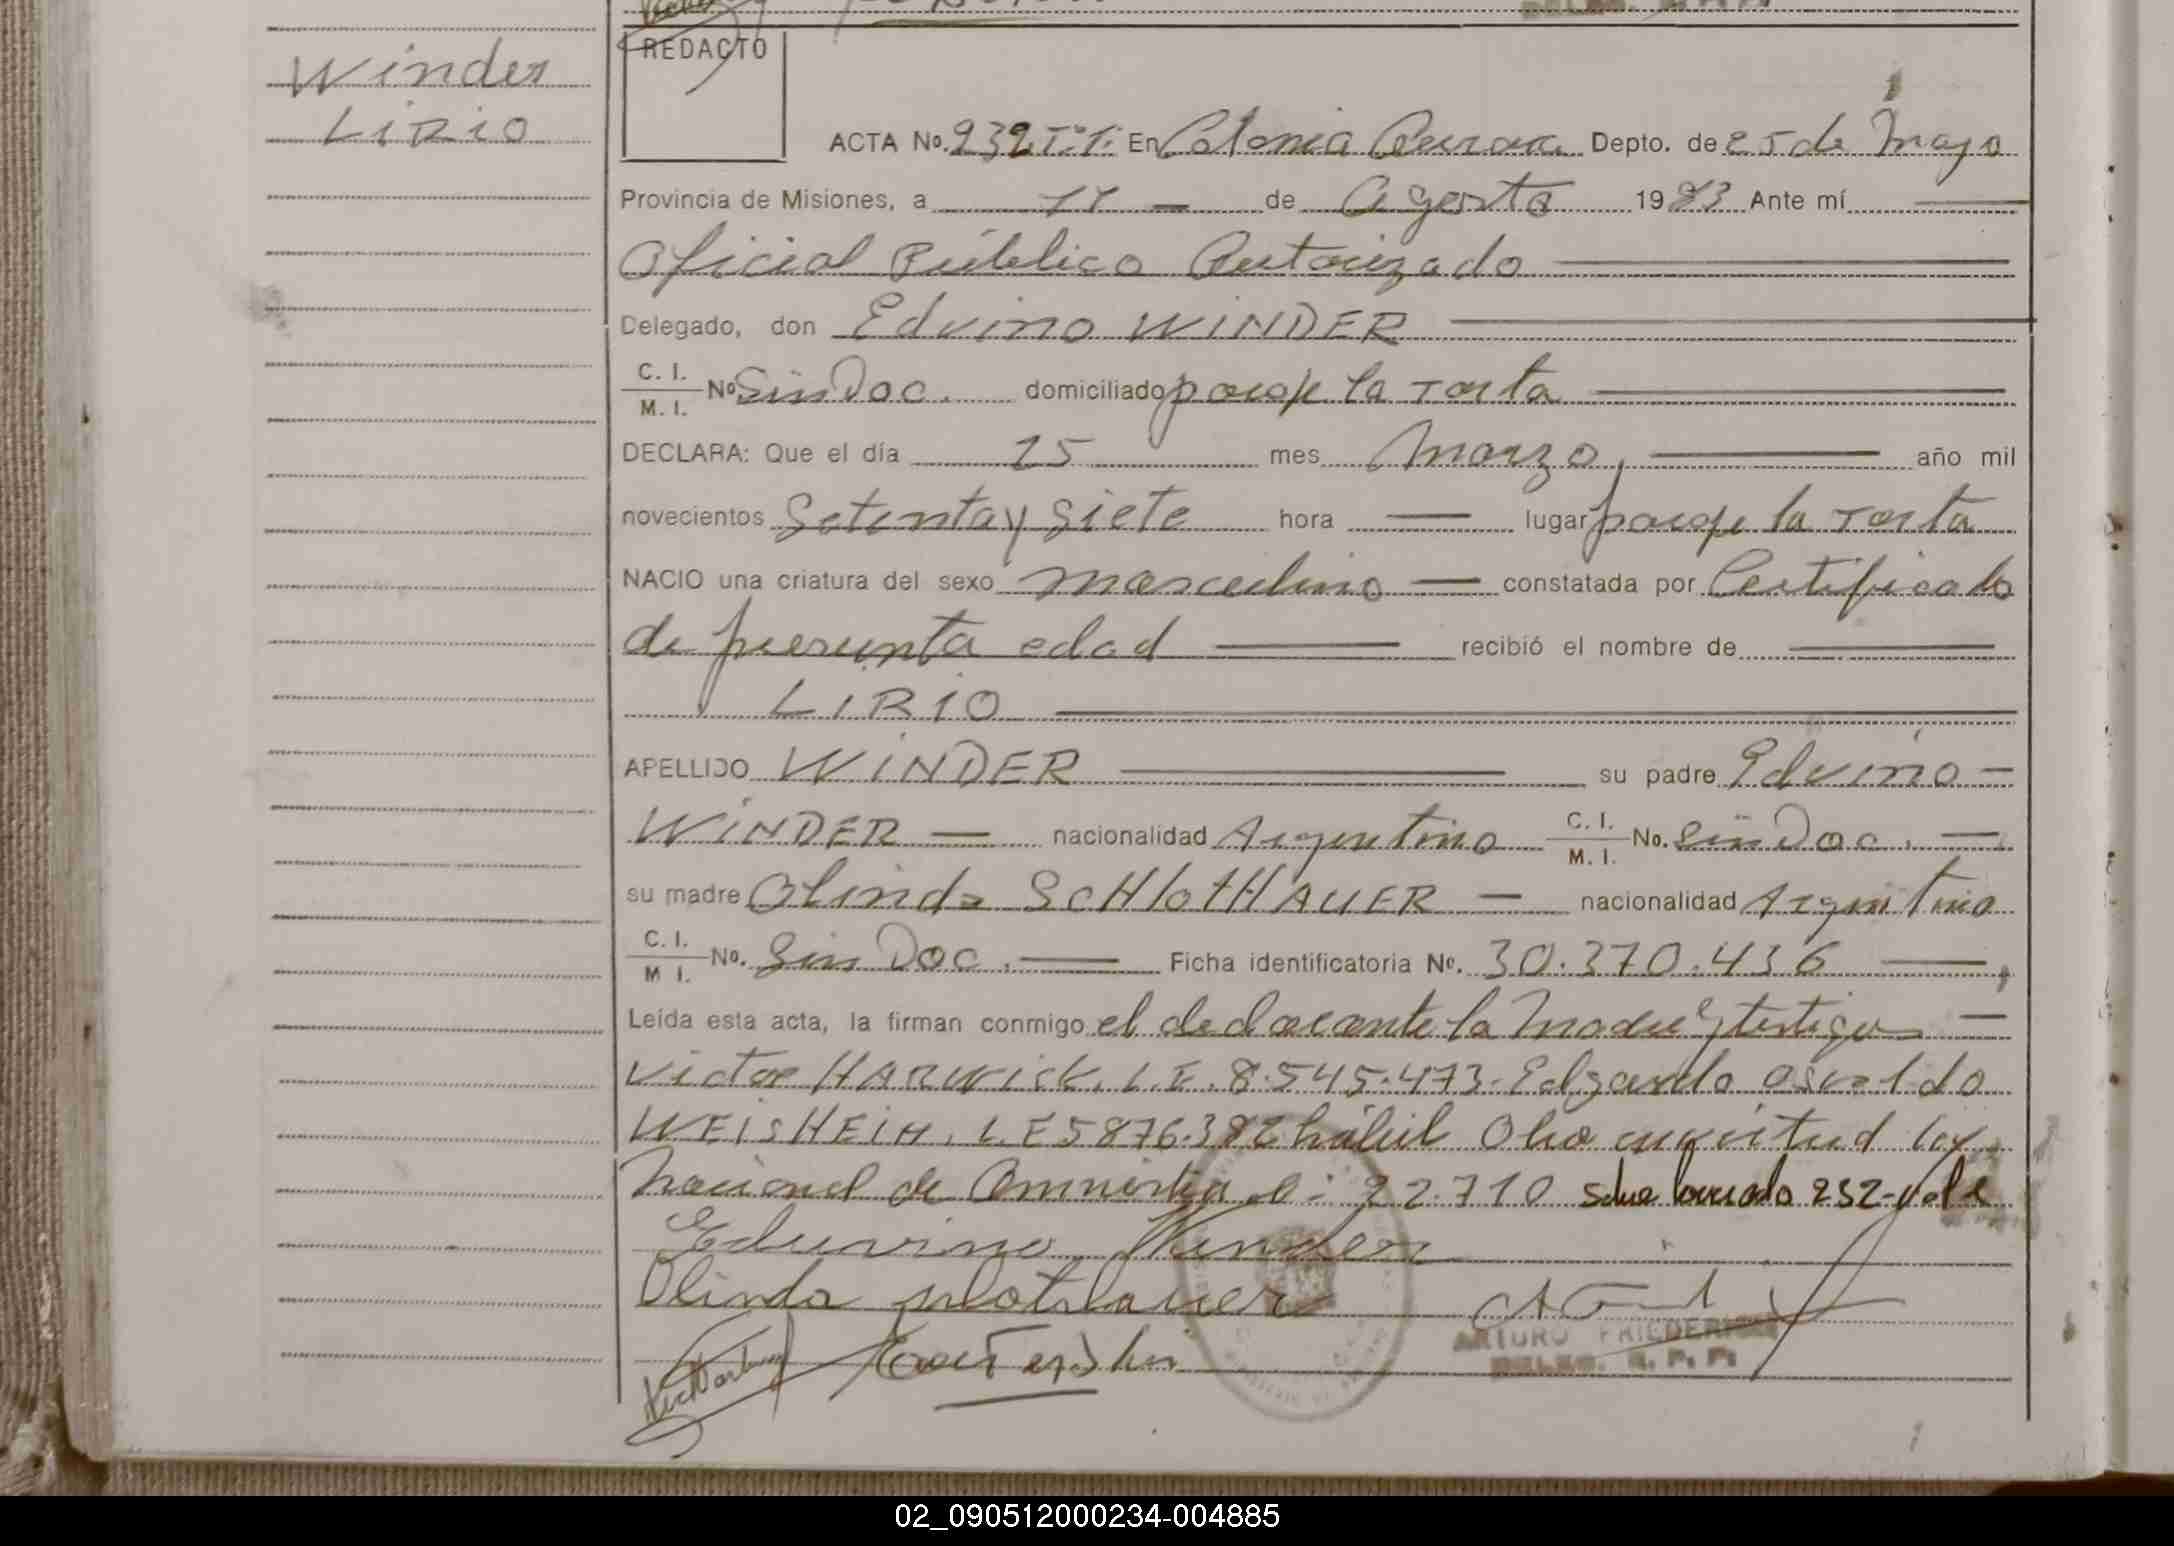 Winder
LIRIO
REDACTO
ACTA No. 232 T:1: En Colonia Aurora Depto. de 25 de Mayo
Provincia de Misiones, a 11 — de Agosto 1983 Ante mí
Oficial Público Autorizado
Delegado, don Edvino WINDER
C. I.
M. I. No Sin Doc. domiciliado paraje la Torta
DECLARA: Que el día 15 mes Marzo, año mil
novecientos Setenta y Siete hora — lugar paraje la Torta
NACIO una criatura del sexo masculino — constatada por Certificado
de presunta edad — recibió el nombre de
LIRIO
APELLIDO WINDER — su padre Edvino —
WINDER — nacionalidad Argentino C. I. M. I. No. Sin Doc. —
su madre Olinda SCHlOtHAUER — nacionalidad Argentina
C. I. M I. No. Sin Doc. — Ficha identificatoria No. 30.370.436
Leída esta acta, la firman conmigo el declarante la Madre y testigos —
Victor HARWICK. L.E. 8.545.473. Edgardo Osvaldo
WEISHEIM. L.E 5876.382 hábil Obra en virtud ley
Nacional de Amnistia n: 22.710 Salve borrado 232-vale
Eduvino Winder
Olinda schlothauer
ARTURO FRIEDERICH
DELEG. R. P. P.
02_090512000234-004885